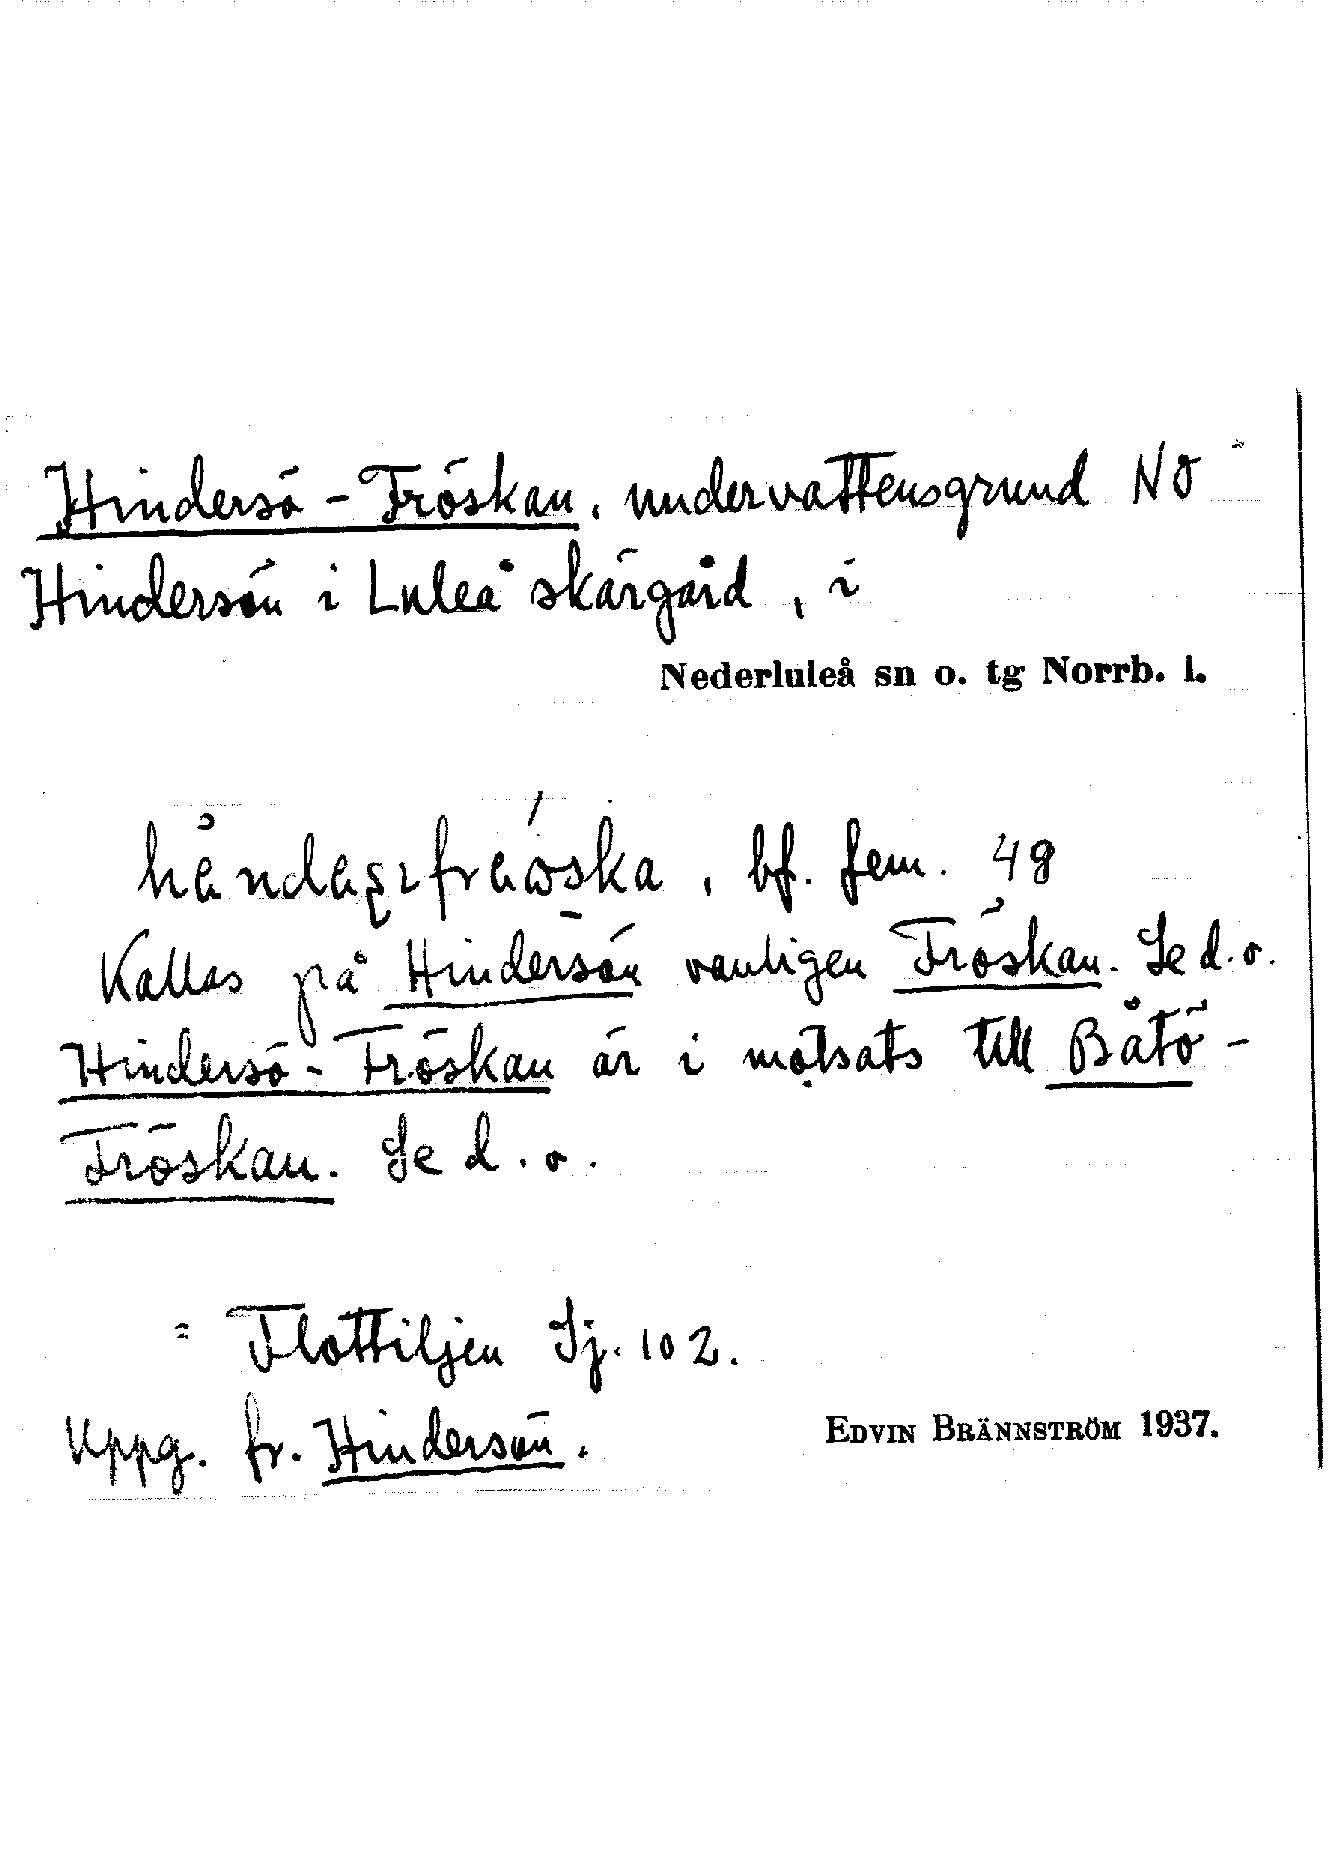 Hindersö-Fröskan, undervattensgrund NO
Hindersön i Luleå skärgård, i
Nederluleå sn o. tg Norrb. l.
bf. fem. 48
Kallas på Hindersön vanligen Fröskan. Se d.o.
Hindersö-Fröskan är i motsats till Båtö-
Fröskan. Se d.o.
= Flottiljen Sj. 102.
Uppg. fr. Hindersön.
EDVIN BRÄNNSTRÖM 1937.